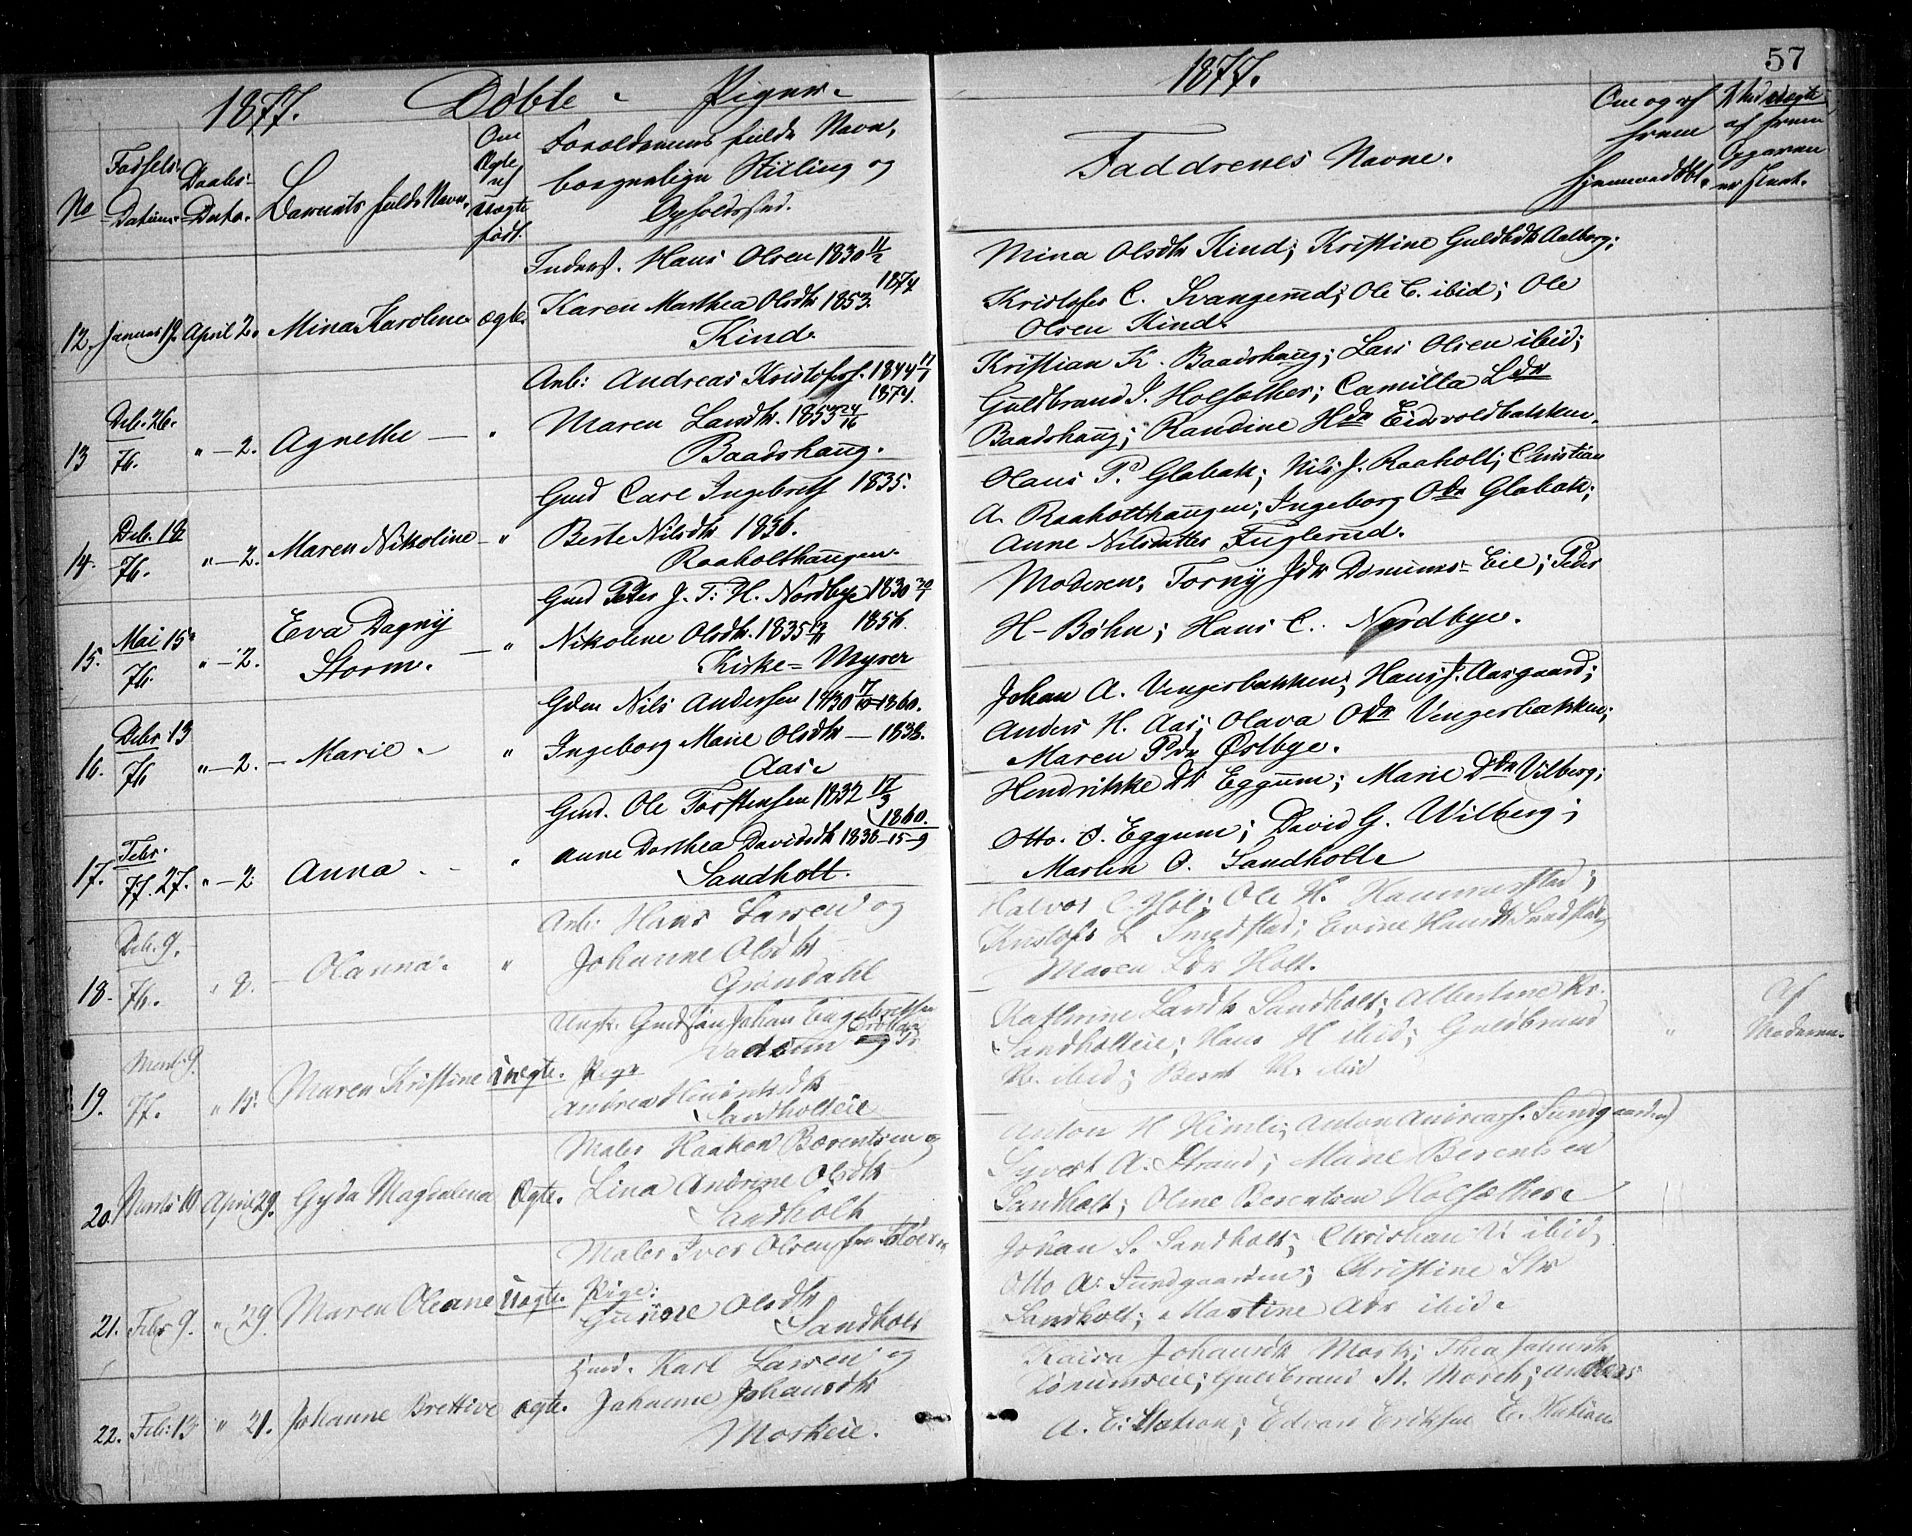 57
1877. Døbte Piger.
1877.
No
Fødsels-
Datum.
Daabs-
Dato.
Barnets fulde Navn.
Om
Ægte
el
uægte
født.
Forældrenes fulde Navn,
borgerlige Stilling og
Opholdssted.
Faddrenes Navne.
Om og af
hvem
hjemmedøbt.
Ved uægte
af hvem
Opgaven
er skeet.
12. Januar 19. April 2. Mina Karoline ægte.
Inderst. Hans Olsen 1830 11/2
1874
Karen Marthea Olsdtr 1853.
Kind.
Mina Olsdtr Kind; Kristine Guldbdtr Aalborg;
Kristofer C. Svangerud; Ole C. ibid; Ole
Olsen Kind.
13 Deb. 26. 76. " — 2. Agnethe — "
Arb: Andreas Kristofers. 1844 11/1
1874.
Maren Larsdtr. 1853 24/16
Baadshaug.
Kristian K. Baadshaug; Lars Olsen ibid;
Guldbrand J. Holsæther; Camilla Ldtr
Baadshaug; Randine Hdtr Eidsvoldbakken.
14. Deb. 18 76. " — 2. Maren Nikoline — "
Gmd Carl Ingebrets 1835.
Berte Nilsdtr 1836.
Raaholthaugen.
Olaus P. Glabak; Nils J. Raaholt; Christian
A. Raaholthaugen; Ingeborg Odtr Glabak;
Anne Nilsdatter Fuglerud.
15. Mai 15 76. " — 2. Eva Dagny
Storm. — "
Gmd Peter J. T. H. Nordbye 1830
Nikoline Olsdtr. 1835 1856.
Kirke = Myrer
Moderen; Torny Jdtr Dønnums = Eie; Peder
H- Bøhn; Hans C. Nordbye.
16. Debr 13 76 " — 2. — Marie — "
Gdm Nils Andersen 1830 1860.
Ingeborg Marie Olsdtr — 1838.
Aas
Johan A. Vengerbakken; Hans J. Aasgaard;
Anders H. Aas; Olava Odtr Vengerbakken;
Maren Pdr Østbye.
17. Febr. 77. 27. " — 2 Anna — "
Gmd. Ole Torstensen 1832 17/3
1860.
Anne Dorthea Davidsdtr 1838 — 15-9
Sandholt.
Hendrikke Dtr Eggum; Marie Ddtr Vilberg;
Otto. O. Eggum; David G. Wilberg;
Martin O. Sandholt
18. Deb. 9. 76. " 8. — Olanna "
Arb: Hans Larsen og
Johanne Olsdtr
Grøndahl
Halvor C. Hol; Ole H. Hammerstad;
Kristofr L Smedstad; Evine Hansdtr Smedstad;
Maren Ldtr Holt.
19. 9. 77. " 15. Maren Kristine uægte.
Ungk. Gmdsøn Johan Engebretsen
og
Pige
Andrea
Sandholteie
Kathrine Larsdtr Sandholt; Albertine Kr.
Sandholteie; Hans H ibid; Guldbrand
K. ibid; Bernt K. ibid
"
Af
Moderen.
20. Marts 10 April 29. Gyda Magdalena ægte.
Maler Haakon Bærentsen og
Lina Andrine Olsdtr
Sandholt
Anton H Himle; Anton Andreass. Sundgaarden;
Syvert A. Strand; Marie Berentsen
Sandholt; Oline Berentsen Holsæther
21. Febr 9. " 29. Maren Oleane uægte.
Maler Iver Olsen og
Pige:
Gunne Olsdtr
Sandholt
Johan S. Sandholt; Christian ibid;
Otto A. Sundgaarden; Kristine Sdtr
Sandholt; Martine Adr ibid.
22. Feb: 13 " 21. Johanne Brettive ægte.
Gmd. Karl Larsen og
Johanne Johansdtr
Morkeie.
Kaisa Johansdtr Mork; Thea Johansdtr
Dønumseie; Guldbrand N. Morch; Anders
A. E. Station; Edvard Eriksen E. Station